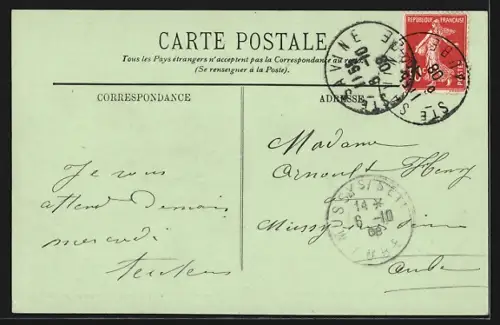 CARTE POSTALE
Tous les Pays étrangers n'acceptent pas la Correspondance au
(Se renseigner à la Poste).
REPUBLIQUE FRANÇAISE
CORRESPONDANCE
ADRESSE
STE SAVINE
MUSSY S/ SEINE
14 *
6 - 10
08
Madame
Arnoult Henry
à
Mussy sur Seine
Aube
Je vous
attend Demain
mercredi